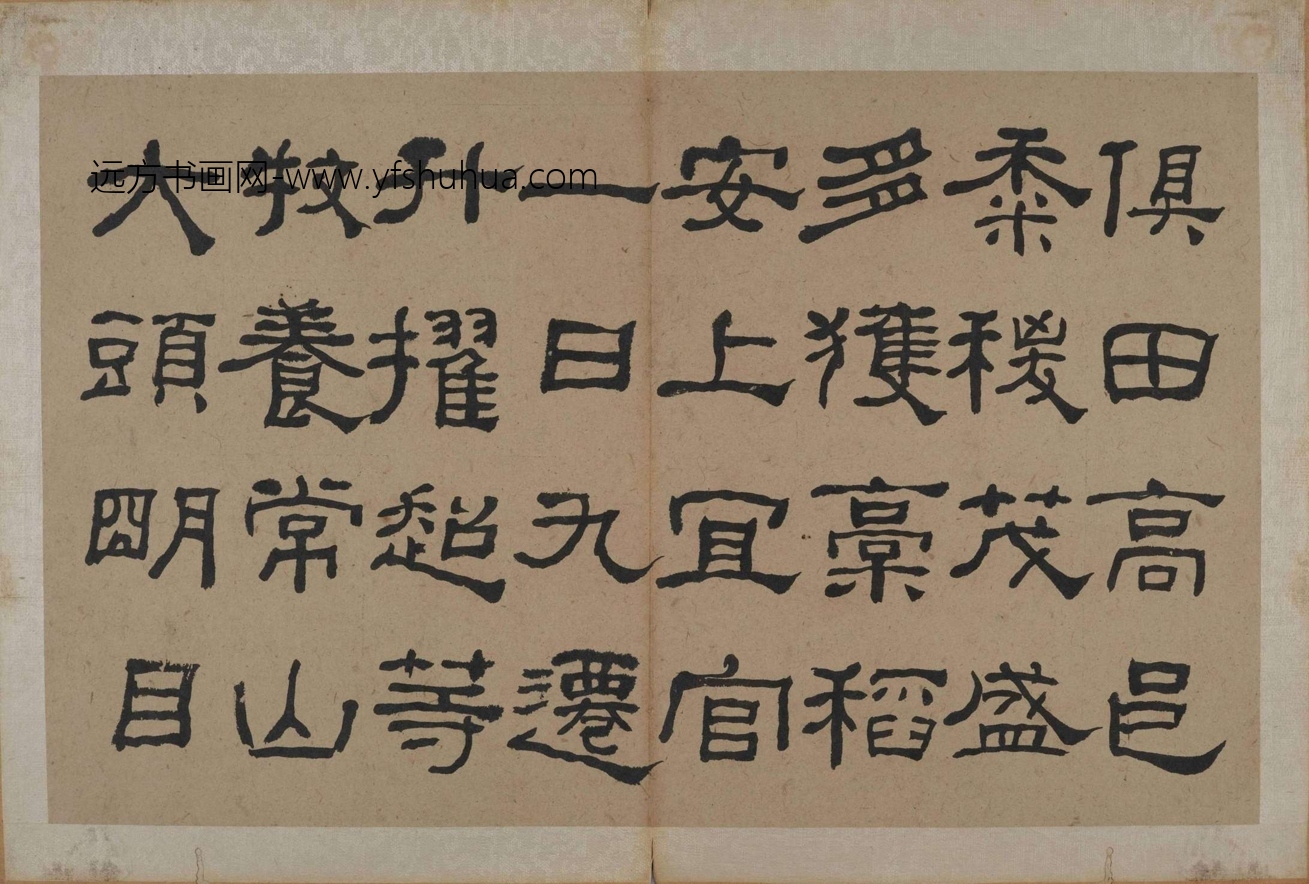 俱田高邑
黍稷茂盛
多獲藁稻
安上宜官
一日九遷
升擢超等
牧養常山
大頭明目
远方书画网-www.yfshuhua.com